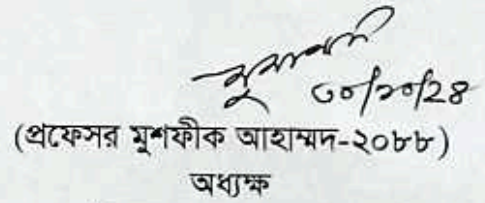 ৩০/১০/২৪
(প্রফেসর মুশফীক আহাম্মদ-২০৮৮)
অধ্যক্ষ